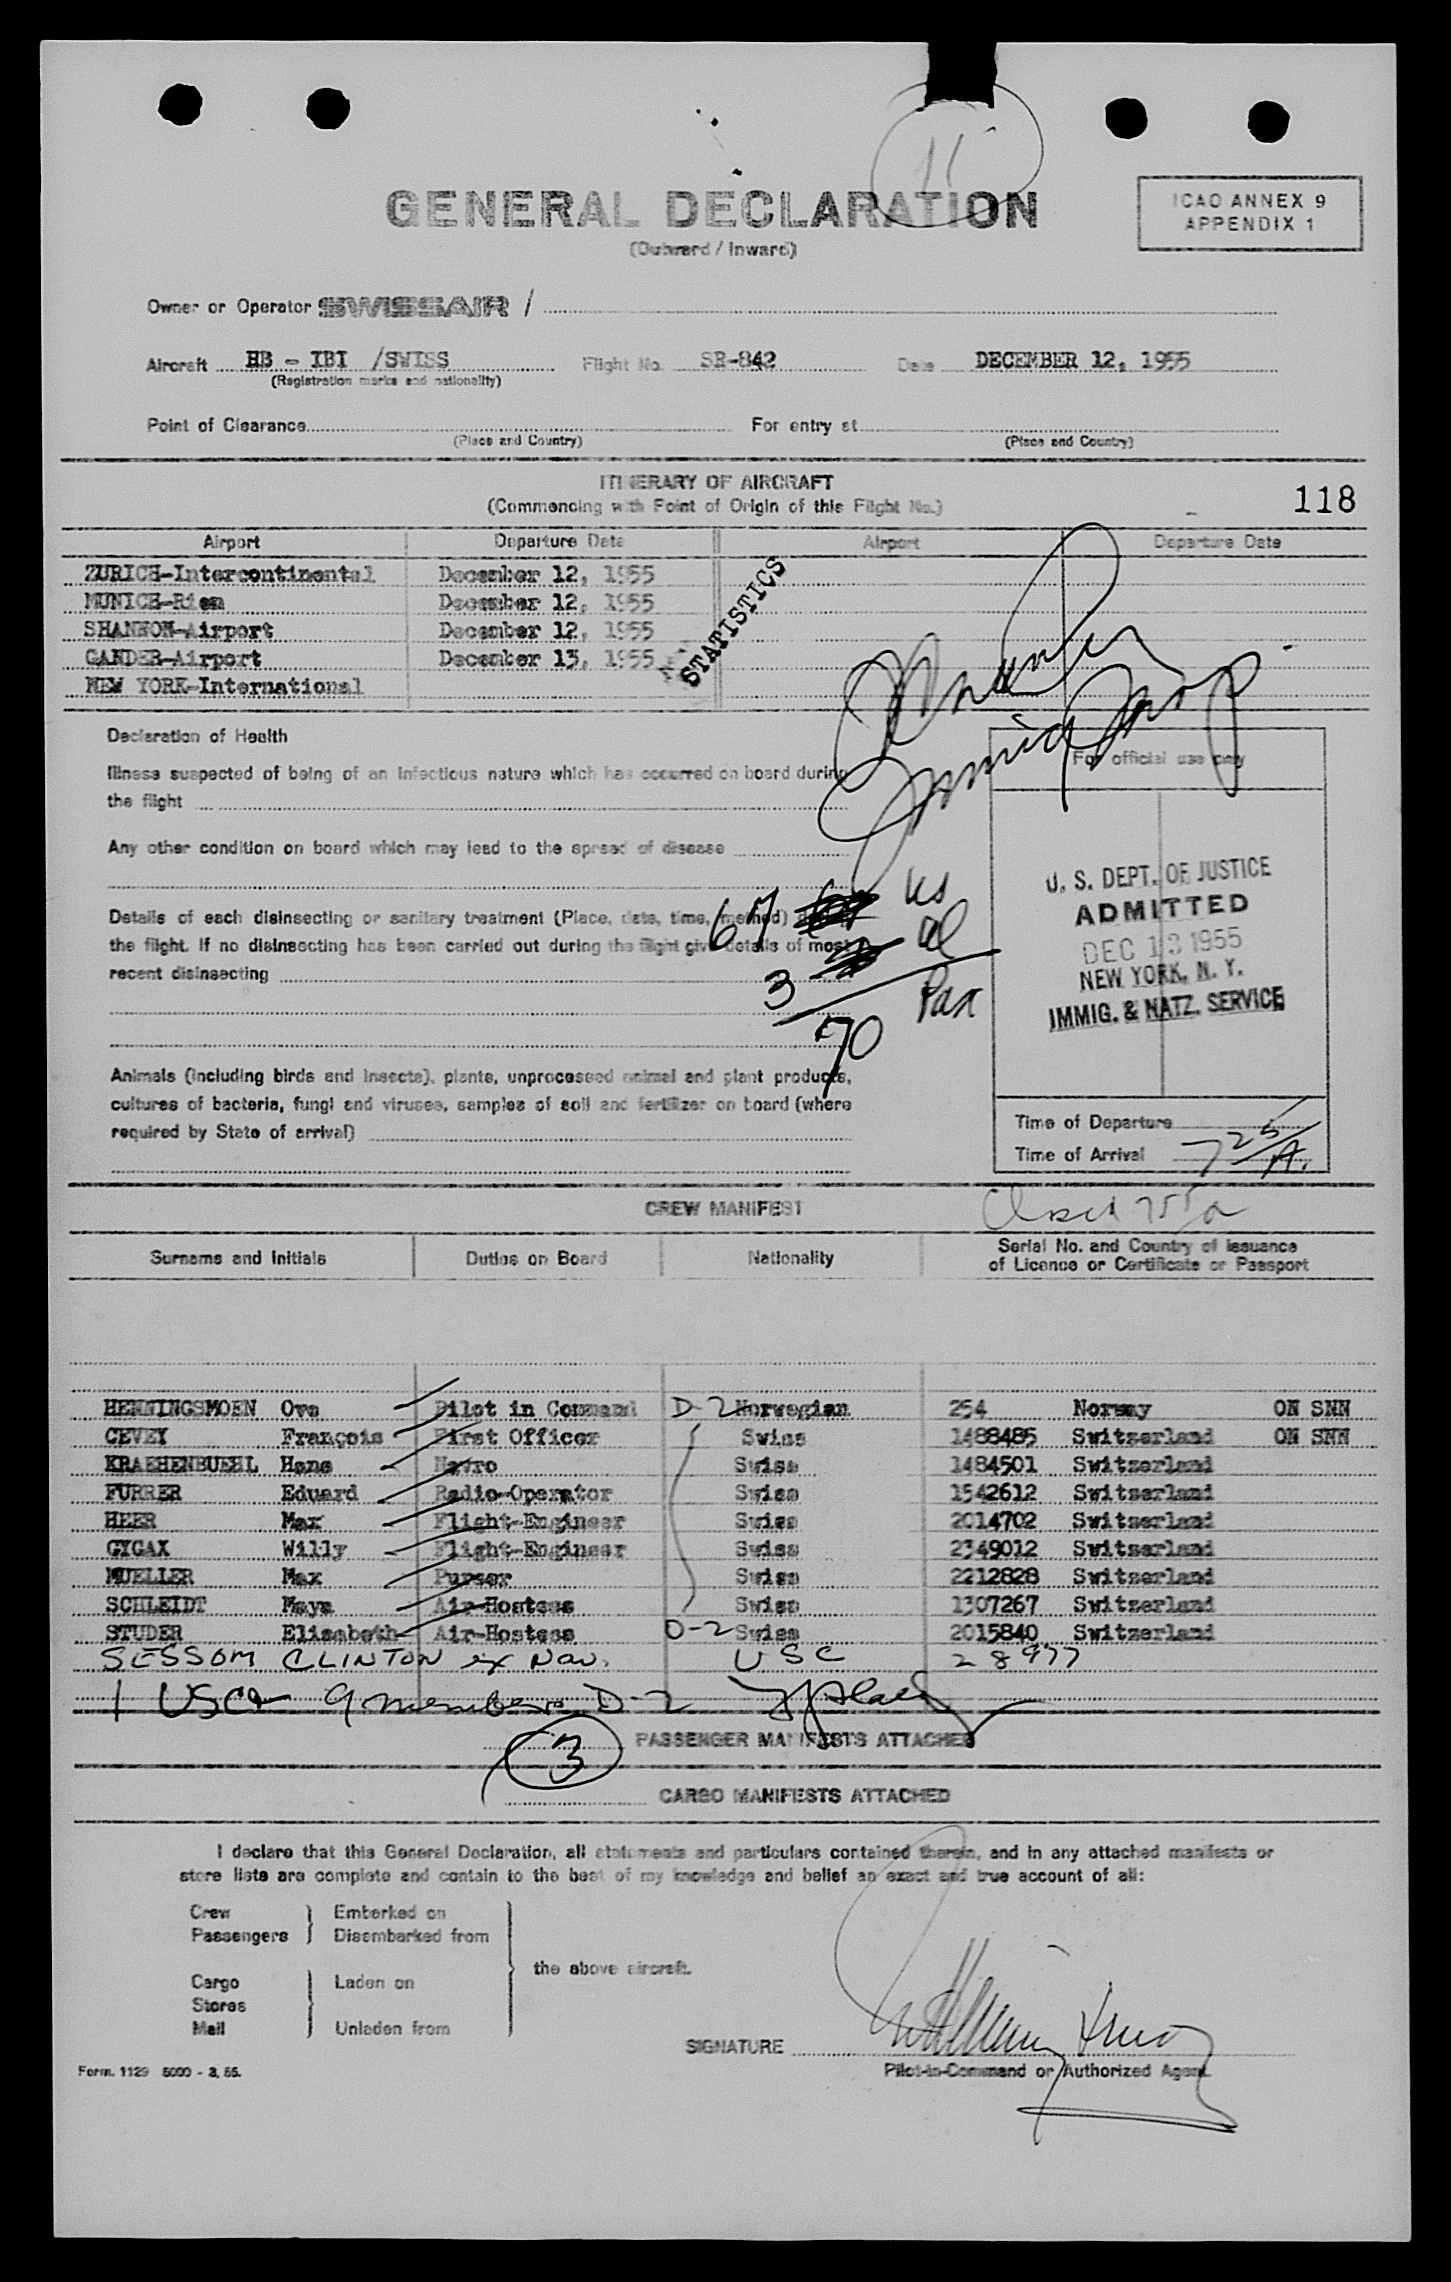 11
GENERAL DECLARATION
(Outward / Inward)
ICAO ANNEX 9
APPENDIX 1
Owner or Operator SWISSAIR /
Aircraft HB - IBI /SWISS Flight No. SR-842 Date DECEMBER 12, 1955
(Registration marks and nationality)
Point of Clearance For entry at
(Place and Country) (Place and Country)
ITINERARY OF AIRCRAFT
(Commencing with Point of Origin of this Flight No.)
118
Airport Departure Date Airport Departure Date
ZURICH-Intercontinental December 12, 1955
MUNICH-Riem December 12, 1955
SHANNON-Airport December 12, 1955
GANDER-Airport December 13, 1955
NEW YORK-International
STATISTICS
Declaration of Health
Illness suspected of being of an infectious nature which has occurred on board during
the flight
Any other condition on board which may lead to the spread of disease
Details of each disinsecting or sanitary treatment (Place, date, time, method) during
the flight. If no disinsecting has been carried out during the flight give details of most
recent disinsecting
67 us
3 al
70 Pax
Animals (including birds and insects), plants, unprocessed animal and plant products,
cultures of bacteria, fungi and viruses, samples of soil and fertilizer on board (where
required by State of arrival)
For official use only
U. S. DEPT. OF JUSTICE
ADMITTED
DEC 13 1955
NEW YORK, N. Y.
IMMIG. & NATZ. SERVICE
Time of Departure
Time of Arrival 7 25/A.
CREW MANIFEST
Surname and Initials Duties on Board Nationality Serial No. and Country of issuance
of Licence or Certificate or Passport
HENNINGSMOEN Ove Pilot in Command D-2 Norwegian 254 Norway ON SNN
CEVEY François First Officer Swiss 1488485 Switzerland ON SNN
KRAEHENBUEHL Hans Navro Swiss 1484501 Switzerland
FURRER Eduard Radio-Operator Swiss 1542612 Switzerland
HEER Max Flight-Engineer Swiss 2014702 Switzerland
GYGAX Willy Flight-Engineer Swiss 2349012 Switzerland
MUELLER Max Purser Swiss 2212828 Switzerland
SCHLEIDT Maya Air-Hostess Swiss 1307267 Switzerland
STUDER Elisabeth Air-Hostess D-2 Swiss 2015840 Switzerland
SESSOM CLINTON ex Nav. USC 28977
1 USC & 9 members D-2
3 PASSENGER MANIFESTS ATTACHED
CARGO MANIFESTS ATTACHED
I declare that this General Declaration, all statements and particulars contained therein, and in any attached manifests or
store lists are complete and contain to the best of my knowledge and belief an exact and true account of all:
Crew Embarked on
Passengers Disembarked from
the above aircraft.
Cargo Laden on
Stores
Mail Unladen from
SIGNATURE
Pilot-in-Command or Authorized Agent
Form. 1129 5000 - 3. 55.